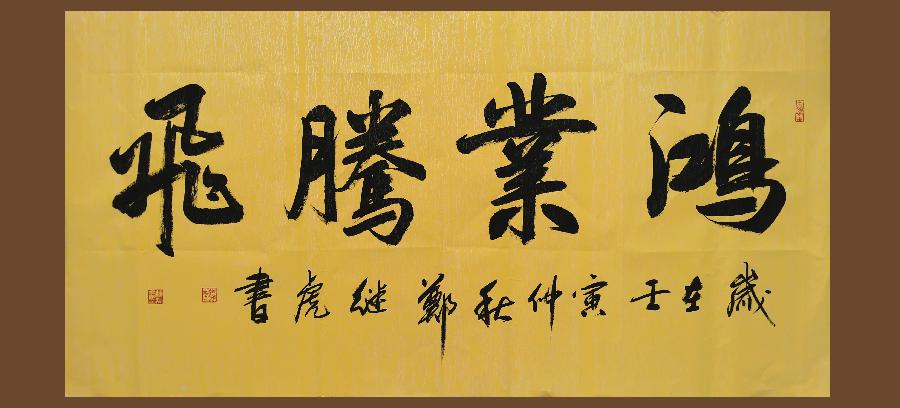 鴻業騰飛
歲在壬寅仲秋鄭继虎書